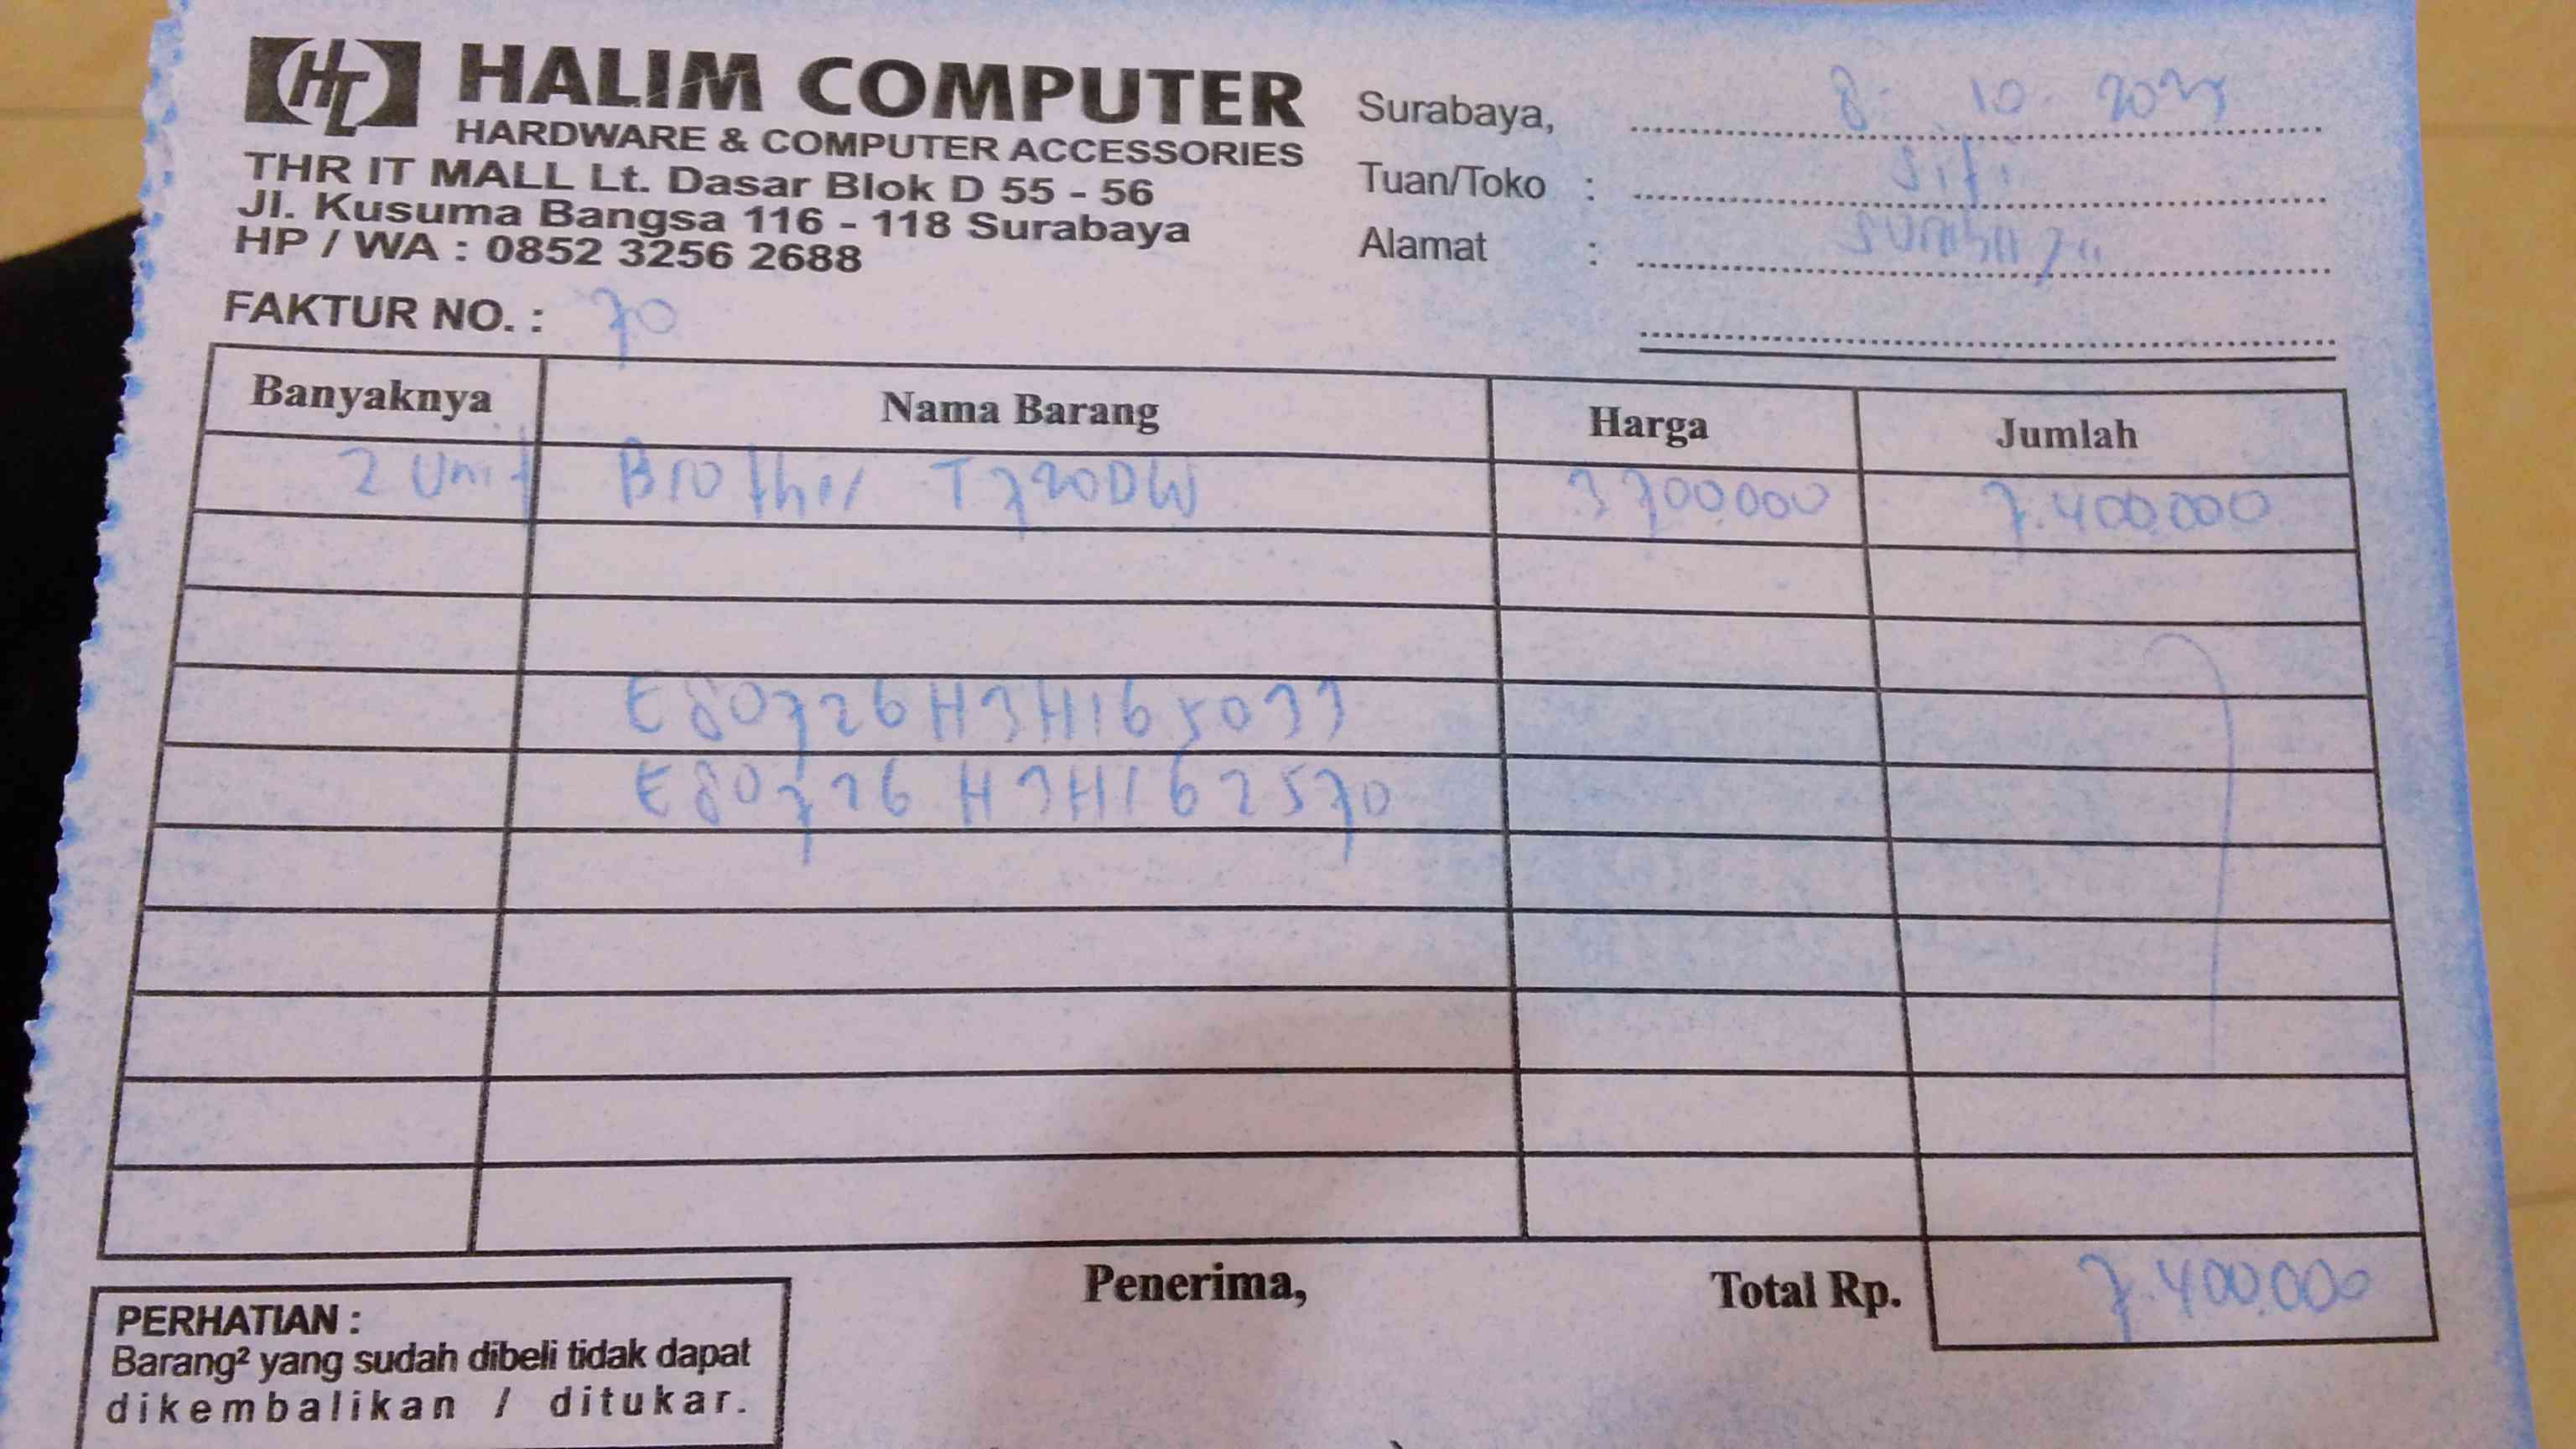 HL HALIM COMPUTER
HARDWARE & COMPUTER ACCESSORIES
THR IT MALL Lt. Dasar Blok D 55 - 56
Jl. Kusuma Bangsa 116 - 118 Surabaya
HP / WA : 0852 3256 2688
FAKTUR NO. : 70
Surabaya, 8 - 10 -
Tuan/Toko : Siti
Alamat : Surabaya
Banyaknya Nama Barang Harga Jumlah
2 Unit Brother T720DW 3700.000 7.400.000
E80726H3H165033
E80726H3H162570
Penerima, Total Rp. 7.400.000
PERHATIAN :
Barang² yang sudah dibeli tidak dapat
dikembalikan / ditukar.